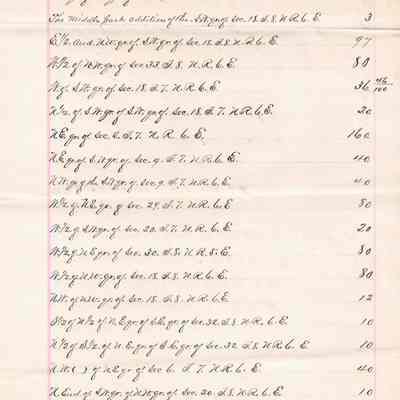 The middle fork addition of the S.W.qr. of Sec. 18. T. 8. N. R. 6. E. 3
E.1/2 and N.W.qr. of S.W.qr. of Sec. 18. T. 8. N. R. 6. E. 97
W1/2 of N.W.qr. of Sec. 33. T. 8. N. R. 6. E. 80
N. of S.W.qr. of Sec. 18. T. 7. N. R. 6. E. 36 46/100
N1/2 of S.W.qr. of S.W.qr. of Sec. 18. T. 7. N. R. 6. E. 20
N.E.qr. of Sec. 6. T. 7. N. R. 6. E. 160
N.E.qr. of S.W.qr. of Sec. 9. T. 7. N. R. 6. E. 40
N.W.qr. of the S.W.qr. of Sec. 9. T. 7. N. R. 6. E. 40
W1/2 of N.E.qr. of Sec. 29. T. 7. N. R. 6. E. 80
W1/2 of S.W.qr. of Sec. 20. T. 7. N. R. 6. E. 20
W1/2 of N.E.qr. of Sec. 30. T. 8. N. R. 5. E. 80
W1/2 of N.W.qr. of Sec. 18. T. 8. N. R. 6. E. 80
N.W. of N.W.qr. of Sec. 18. T. 8. N. R. 6. E. 12
S1/2 of N1/2 of N.E.qr. of S.E.qr. of Sec. 32. T. 8. N. R. 6. E. 10
N1/2 of S1/2 of N.E.qr. of S.E.qr. of Sec. 32. T. 8. N. R. 6. E. 10
N.W.( ) of N.E.qr. of Sec. 6. T. 7. N. R. 6. E. 40
N. End of S.W.qr. of N.W.qr. of Sec. 20. T. 8. N. R. 6. E. 10